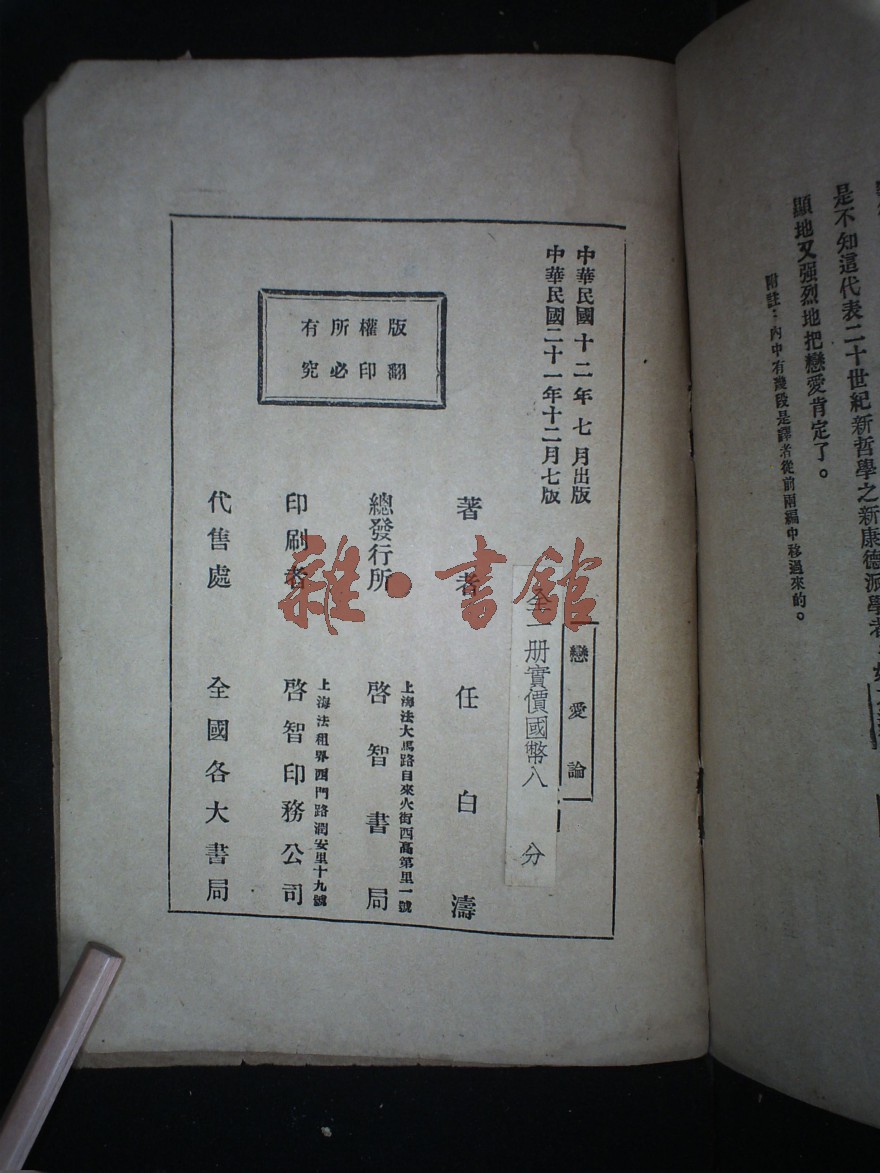 是不知這代表二十世紀新哲學之新康德派學者
顯地又强烈地把戀愛肯定了。
附註:內中有幾段是譯者從前兩編中移過來的。
中華民國十二年七月出版
中華民國二十一年十二月七版
版權所有
翻印必究
戀愛論
全一册實價國幣八 分
著者 任白濤
總發行所 上海法大馬路自來火街西高第里一號
啓智書局
印刷者 上海法租界西門路潤安里十九號
啓智印務公司
代售處 全國各大書局
雜·書館